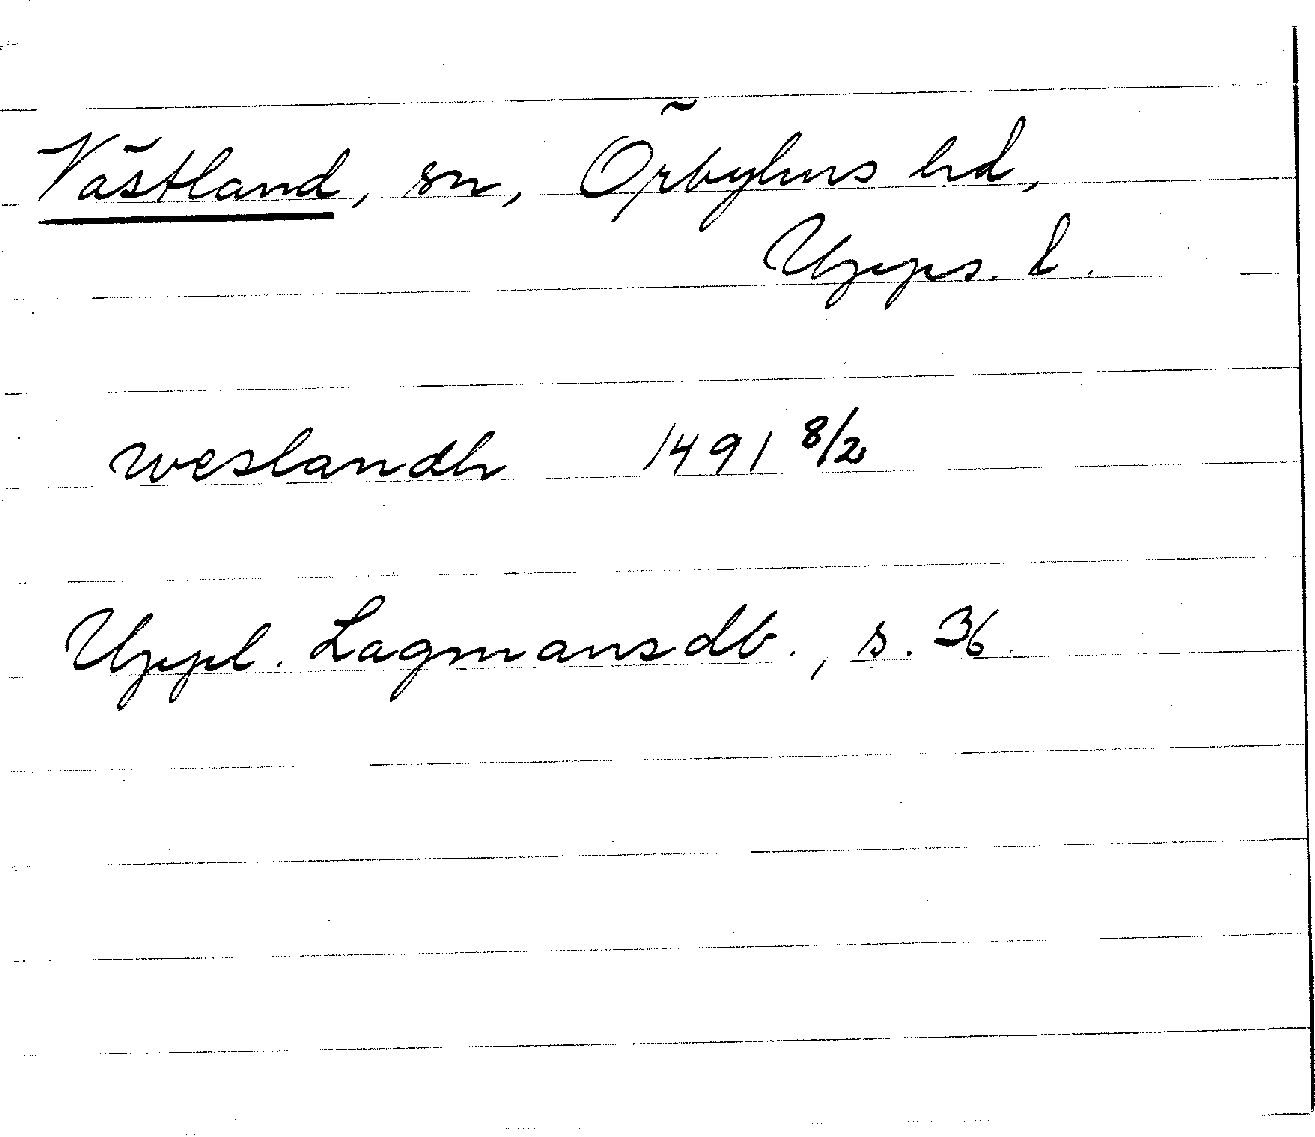 Västland, sn, Örbyhus hd,
Upps. l.
weslandh 1491 8/2
Uppl. Lagmansdb., s. 36